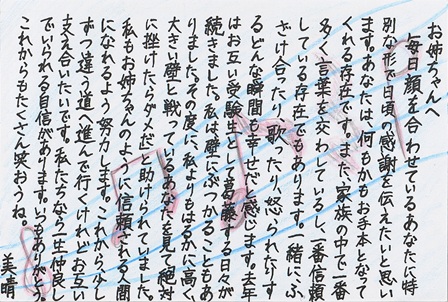 お姉ちゃんへ
毎日顔を合わせているあなたに特
別な形で日頃の感謝を伝えたいと思い
ます。あなたは、何もかもお手本となって
くれる存在です。また、家族の中で一番
多く言葉を交わしているし、一番信頼
している存在でもあります。一緒に、ふ
ざけ合ったり、歌ったり、怒られたりす
るどんな瞬間も幸せだと感じます。去年
はお互い受験生として葛藤する日々が
続きました。私は壁にぶつかることもあ
りました。その度に、私よりもはるかに高く、
大きい壁と戦っているあなたを見て「絶対
に挫けたらダメだ」と助けられていました。
私もお姉ちゃんのように信頼される人間
になれるよう努力します。これから、少し
ずつ違う道へ進んで行くけれどお互い
支え合いたいです。私たちなら一生仲良し
でいられる自信があります。いつもありがとう。
これからもたくさん笑おうね。
美晴